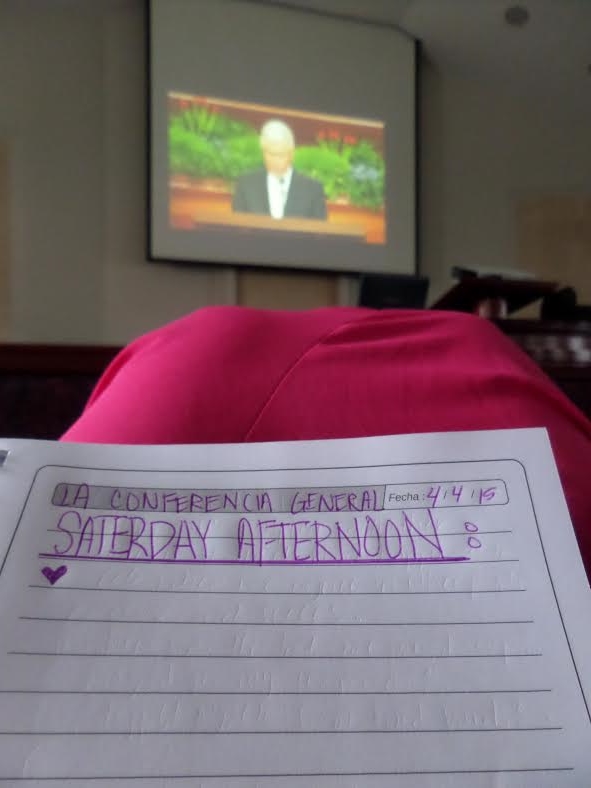 LA CONFERENCIA GENERAL Fecha: 4/4/15
SATERDAY AFTERNOON: